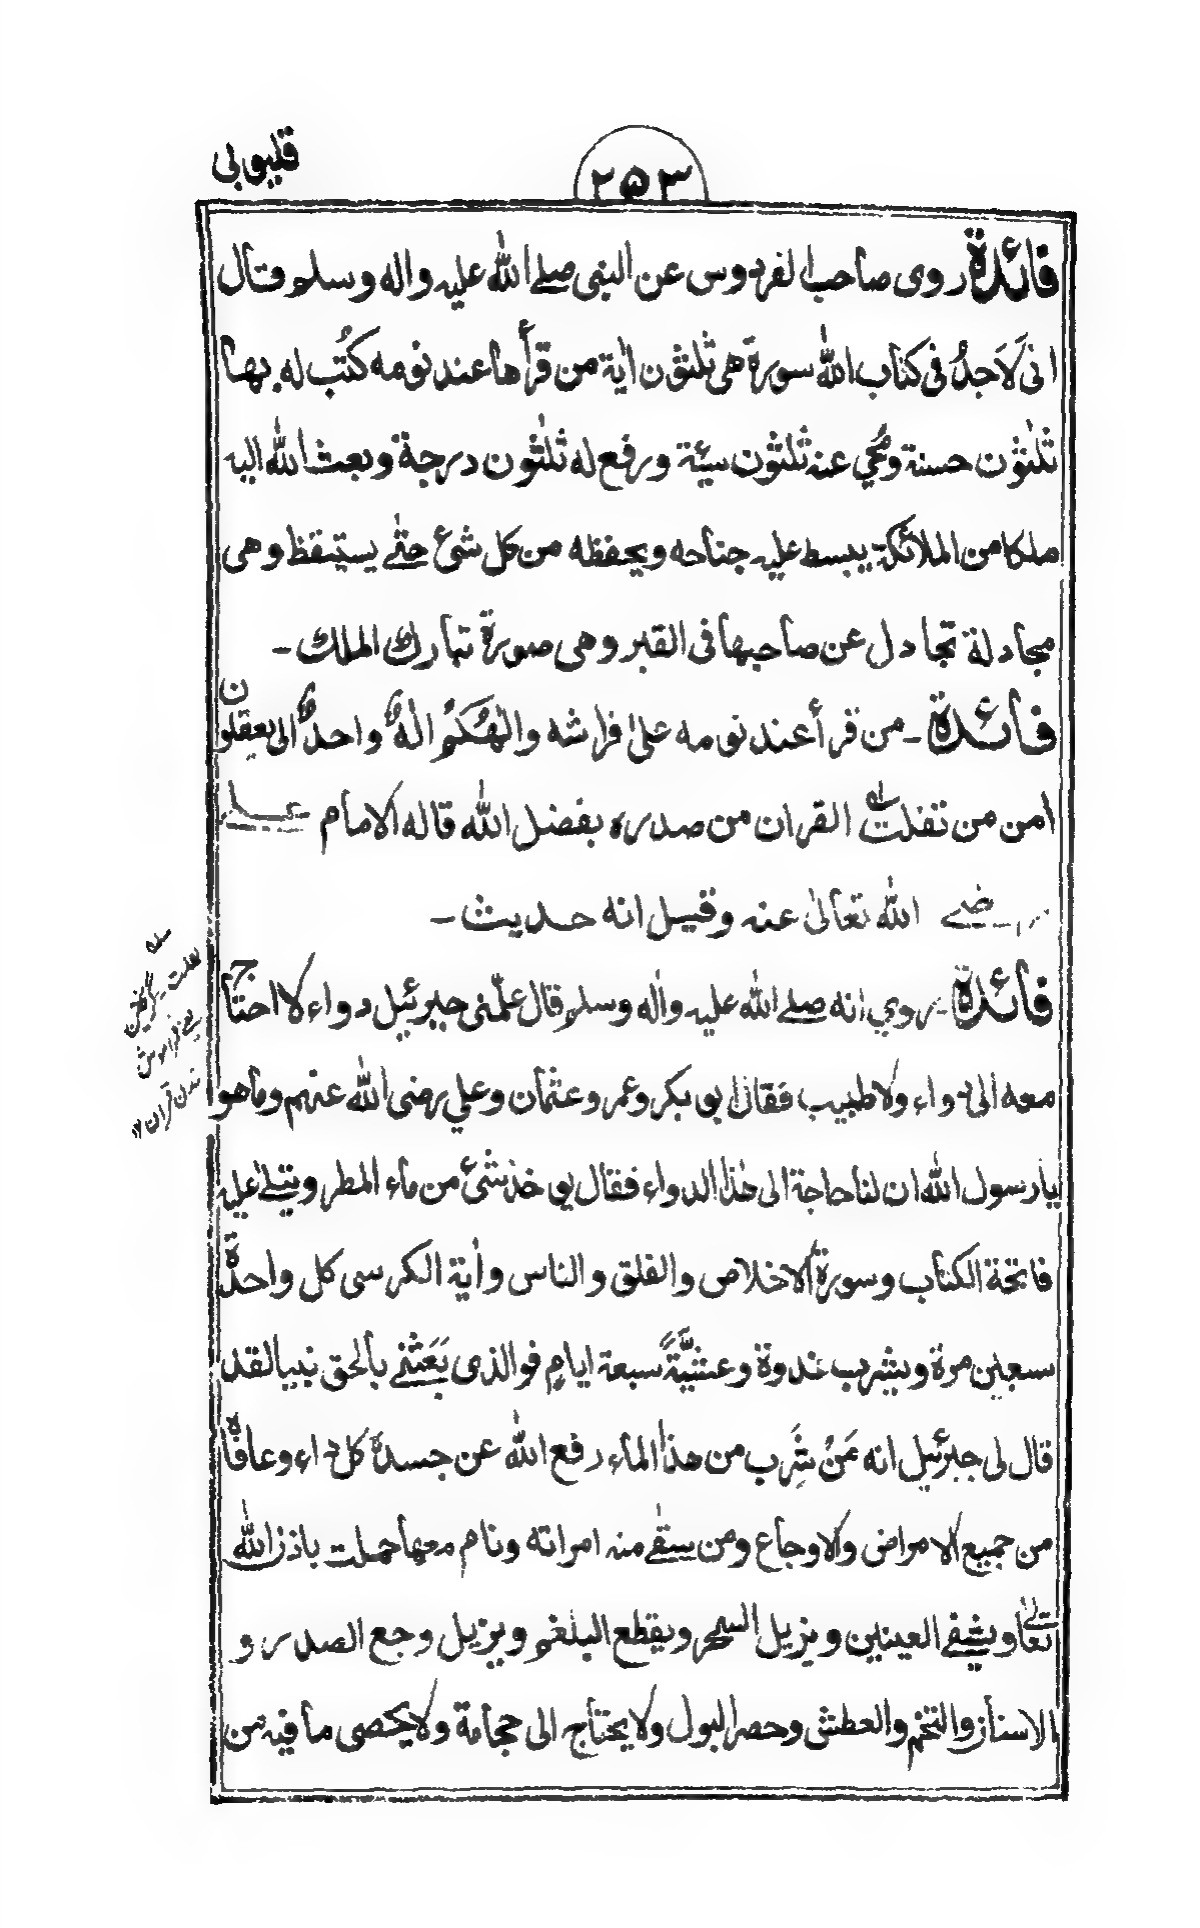 قليوبى
٢٥٣
فائدة روى صاحب الفردوس عن النبى صلے الله عليه واله وسلم قال
انى لَاَجدُ فى كتاب الله سورة هى ثلثون اٰية من قرأها عند نومه كُتُب له بها
ثلثون حسنة ومُحي عنه ثلثون سيئة ورفع له ثلثون درجة وبعث الله اليه
ملكا من الملائكة يبسط عليه جناحه ويحفظه من كل شئ حتے يستيقظ وهى
مجادلة تجادل عن صاحبها فى القبر وهى سورة تبارك الملك -
فائدة - من قرأ عند نومه على فراشه والٰهُكم الٰهٌ واحدٌ الى يعقلون
امن من تفلت القران من صدره بفضل الله قاله الامام علے
رضے الله تعالىٰ عنه وقيل انه حديث -
فائدة - روي انه صلے الله عليه واٰله وسلم قال علّمنى جبرئيل دواء لا احتاج
معه الى دواء ولا طبيب فقال ابو بكر وعمر وعثمان وعلي رضى الله عنهم وما هو
يا رسول الله ان لنا حاجة الى هٰذا الدواء فقال يوخذ شئ من ماء المطر ويتلے عليه
فاتحة الكتاب وسورة الاخلاص والفلق والناس واٰية الكرسى كل واحدة
سبعين مرة ويشرب غدوة وعشيَّةً سبعة ايامٍ فوالذى بَعَثَنے بالحق نبيا لقد
قال لى جبرئيل انه مَنْ شَرِب من هذا الماء رفع الله عن جسده كل داء وعافاه
من جميع الامراض والاوجاع ومن سقے منه امراته ونام معها حملت باذن الله
تعالے ويشفے العينين ويزيل السحر ويقطع البلغم ويزيل وجع الصدر و
الاسنان والتخم والعطش وحصر البول ولا يحتاج الى حجامة ولا يحصى ما فيه من
سله
يعنے فراموش
شدن قران ١٢